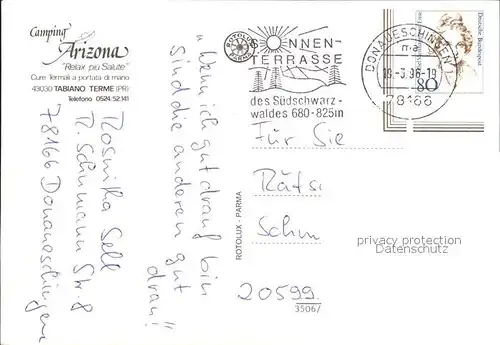 Camping
Arizona
"Relax più Salute"
Cure Termali a portata di mano
43030 TABIANO TERME (PR)
Telefono 0524.52.141
"Wenn ich gut drauf bin
sind die anderen gut
dran!!
Sell
R. Schumann Str. 8
78166 Donaueschingen
ROTOLUX - PARMA
ROTOLUX
PARMA
SONNEN-
TERRASSE
des Südschwarz-
waldes 680-825m
DONAUESCHINGEN 1
ma
-3.96-18
78166
Deutsche Bundespost
80
Für Sie
Rätsi
Schm
20599
3506/
privacy protection
Datenschutz